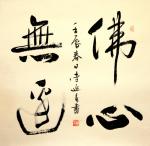 佛心
無邊
壬辰春日
書